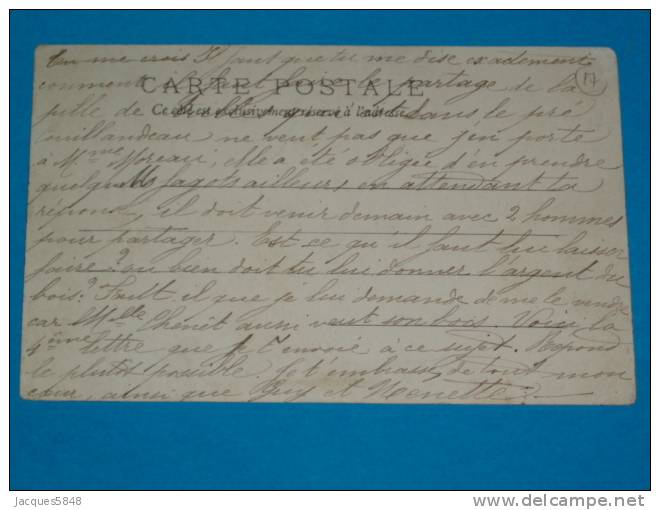 tu me crois Il faut que tu me dise exactement
comment il faut faire le partage de la
CARTE POSTALE
17
Ce côté est exclusivement réservé à l'adresse
pille de dans le pré
ouillandeau ne veut pas que j'en porte
à Mme Moreau, elle a été obligée d'en prendre
quelques fagots ailleurs, en attendant ta
réponse, il doit venir demain avec 2 hommes
pour partager. Est-ce qu'il faut lui laisser
faire? ou bien doit tu lui donner l'argent du
bois? Faut-il que je lui demande de me le vendre
car Mlle Chenêt aussi veut son bois. Voici la
4ème lettre que je t'envoie à ce sujet. Répond
le plutôt possible. Je t'embrasse de tout mon
cœur, ainsi que Guy et Nenette
Jacques5848
www.delcampe.net